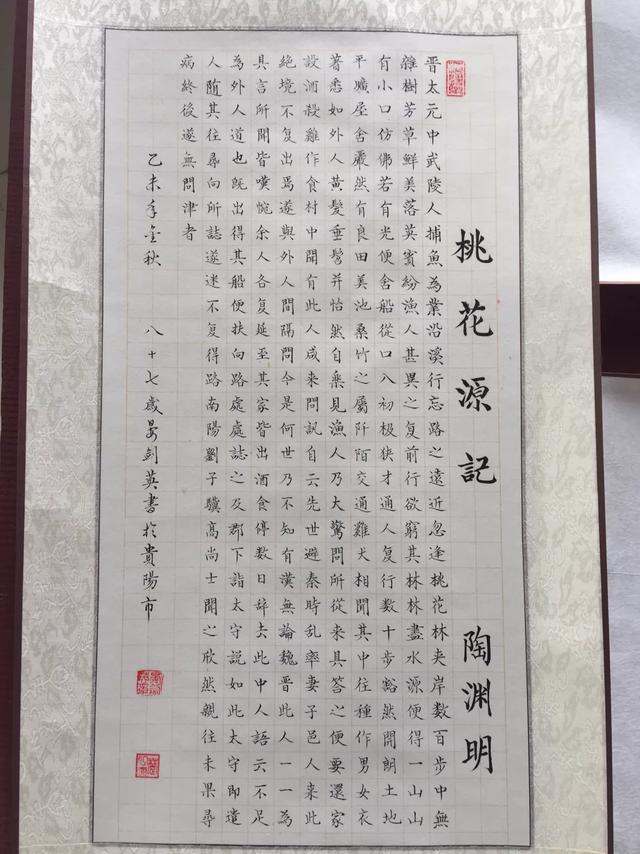 桃花源記 陶渊明
晋太元中武陵人捕魚為業沿溪行忘路之遠近忽逢桃花林夾岸数百步中無
雜樹芳草鮮美落英賓紛漁人甚異之复前行欲窮其林林盡水源便得一山山
有小口仿佛若有光便舍船從口入初极狭才通人复行数十步豁然開朗土地
平曠屋舍嚴然有良田美池桑竹之屬阡陌交通雞犬相聞其中往種作男女衣
著悉如外人黃髮垂髫并怡然自樂見漁人乃大驚問所從来具答之便要還家
設酒殺雞作食村中聞有此人咸来問訊自云先世避秦時乱率妻子邑人来此
絶境不复出焉遂與外人間隔問今是何世乃不知有漢無論魏晋此人一一為
具言所聞皆嘆惋余人各复延至其家皆出酒食停数日辞去此中人語云不足
為外人道也既出得其船便扶向路處處誌之及郡下詣太守説如此太守即遣
人随其往尋向所誌遂迷不复得路南陽劉子驥高尚士聞之欣然親往未果尋
病終後遂無問津者
乙未年金秋 八十七歳晏剑英書於貴陽市